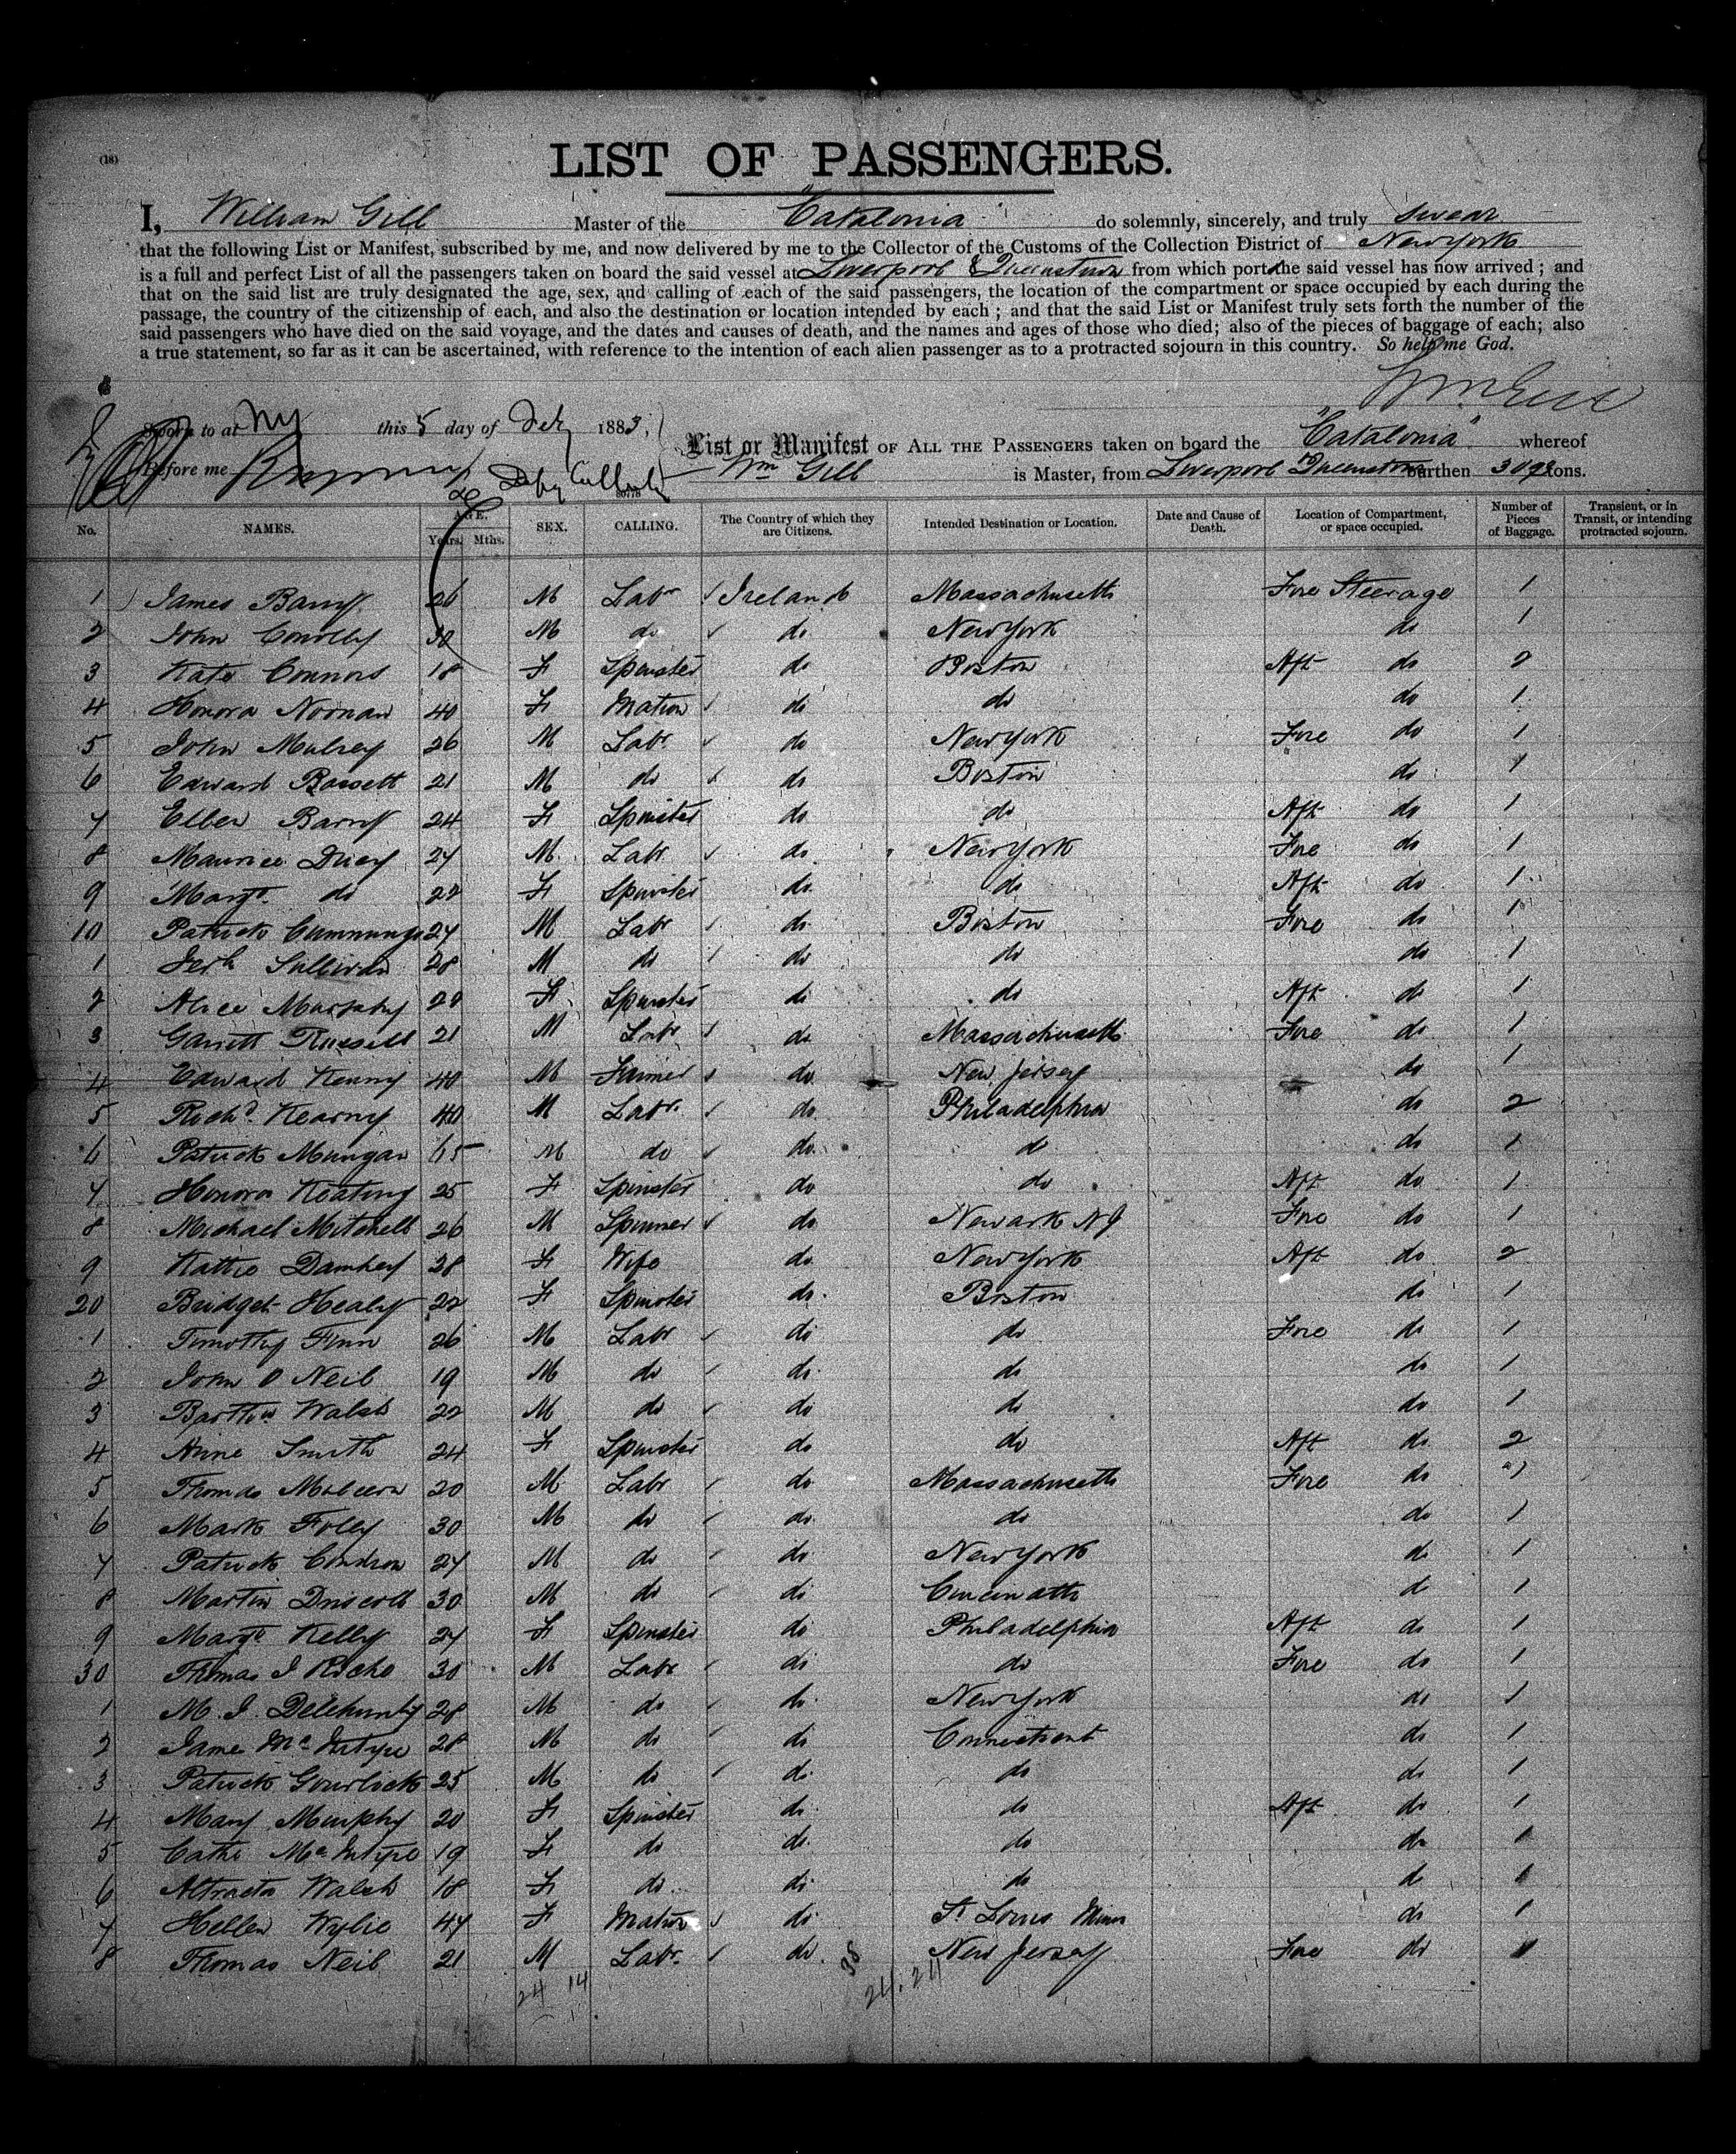 (18)
LIST OF PASSENGERS.
I, William Gill Master of the "Catalonia" do solemnly, sincerely, and truly swear
that the following List or Manifest, subscribed by me, and now delivered by me to the Collector of the Customs of the Collection District of New York
is a full and perfect List of all the passengers taken on board the said vessel at Liverpool & Queenstown from which port the said vessel has now arrived; and
that on the said list are truly designated the age, sex, and calling of each of the said passengers, the location of the compartment or space occupied by each during the
passage, the country of the citizenship of each, and also the destination or location intended by each; and that the said List or Manifest truly sets forth the number of the
said passengers who have died on the said voyage, and the dates and causes of death, and the names and ages of those who died; also of the pieces of baggage of each; also
a true statement, so far as it can be ascertained, with reference to the intention of each alien passenger as to a protracted sojourn in this country. So help me God.
Wm Gill
Sworn to at NY this 5 day of Feby 1883,
List or Manifest OF ALL THE PASSENGERS taken on board the "Catalonia" whereof
Before me Wm Gill is Master, from Liverpool & Queenstown burthen tons.
No. NAMES. AGE. Years. Mths. SEX. CALLING. The Country of which they are Citizens. Intended Destination or Location. Date and Cause of Death. Location of Compartment, or space occupied. Number of Pieces of Baggage. Transient, or in Transit, or intending protracted sojourn.
1 James Barry 26 M Labr Ireland Massachusetts Fore Steerage 1
2 John Conolly 30 M do do New York do 1
3 Kate Connors 18 F Spinster do Boston Aft do 2
4 Honora Noonan 40 F Matron do do do 1
5 John Mulrey 26 M Labr do New York Fore do 1
6 Edward Bassett 21 M do do Boston do 1
7 Ellen Barry 24 F Spinster do do Aft do 1
8 Maurice 27 M Labr do New York Fore do 1
9 Margt do 22 F Spinster do do Aft do 1
10 Patrick Cummings 27 M Labr do Boston Fore do 1
1 Jerh Sullivan 28 M do do do do 1
2 Alice 22 F Spinster do do Aft do 1
3 Garrett Russell 21 M Labr do Massachusetts Fore do 1
4 Edward Kenny 40 M Farmer do New Jersey do 1
5 Richd Kearny 40 M Labr do Philadelphia do 2
6 Patrick 65 M do do do do 1
7 Honora Keating 25 F Spinster do do Aft do 1
8 Michael Mitchell 26 M Spinner do Newark NJ Fore do 1
9 Kattie 28 F Wife do New York Aft do 2
20 Bridget Healy 22 F Spinster do Boston do 1
1 Timothy Finn 26 M Labr do do Fore do 1
2 John O Neil 19 M do do do do 1
3 Barthw Walsh 22 M do do do do 1
4 Anne Smith 24 F Spinster do do Aft do 2
5 Thomas 20 M Labr do Massachusetts Fore do 1
6 Mark Folly 30 M do do do do 1
7 Patrick Condron 27 M do do New York do 1
8 Martin Driscoll 30 M do do Cincinatti do 1
9 Margt Kelly 27 F Spinster do Philadelphia Aft do 1
30 Thomas J Roche 30 M Labr do do Fore do 1
1 M. J. Delehunty 28 M do do New York do 1
2 James McIntyre 28 M do do Connecticut do 1
3 Patrick 25 M do do do do 1
4 Mary Murphy 20 F Spinster do do Aft do 1
5 Cathe McIntyre 19 F do do do do 1
6 Attracta Walsh 18 F do do do do 1
7 Hellen Wylie 47 F Matron do St Louis Minn do 1
8 Thomas Neil 21 M Labr do New Jersey Fore do 1
24 14 38 24.24